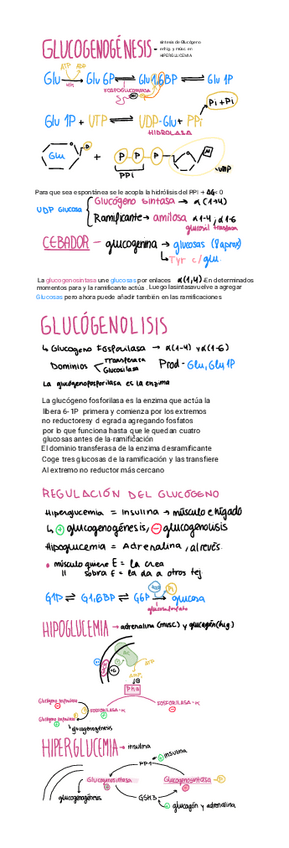 GLUCOGENOGÉNESIS - síntesis de Glucógeno
en híg. y músc. en
HIPERGLUCEMIA
ATP ADP
Glu → Glu 6P ⇌ Glu 1,6BP ⇌ Glu 1P
Glu 1P + UTP ⇌ UDP-Glu + PPi → Pi + Pi
HIDROLASA
Glu P + P P P
PPi UDP
Para que sea espontánea se le acopla la hidrólisis del PPI + ΔG< 0
UDP Glucosa
Glucógeno sintasa → α (1→4)
Ramificante → amilosa α1-4, α1-6
CEBADOR - glucogenina → glucosas (8 aprox)
↳ Tyr c/glu.
La glucogenosintasa une glucosas por enlaces α(1,4) En determinados
momentos para y la ramificante actúa . Luego lasintasavuelve a agregar
Glucosas pero ahora puede añadir también en las ramificaciones
GLUCÓGENOLISIS
↳ Glucogeno Fosforilasa → α(1-4) y α(1-6)
Dominios Transferasa Glucosilasa Prod - Glu, Glu 1P
La glucógenofosforilasa es la enzima
La glucógeno fosforilasa es la enzima que actúa la
libera 6- 1P primera y comienza por los extremos
no reductoresy d egrada agregando fosfatos
por lo que funciona hasta que le quedan cuatro
glucosas antes de la ramificación
El dominio transferasa de la enzima desramificante
Coge tres glucosas de la ramificación y las transfiere
Al extremo no reductor más cercano
REGULACIÓN DEL GLUCÓGENO
Hiperglucemia = insulina → músculo e hígado
↳ + glucogenogénesis, - glucogenolisis
Hipoglucemia = Adrenalina, al revés.
• músculo quiere E = la crea
II sobra E = la da a otros tej.
G1P ⇌ G1,6BP ⇌ G6P → glucosa
HIPOGLUCEMIA → adrenalina (músc) y glucagón (híg)
PKA
FOSFORILASA-K
glucogenogénesis
HIPERGLUCEMIA → insulina
insulina
PP1
Glucogenosintasa Glucogenosintasa
glucogenogénesis GSK3
glucagón y adrenalina